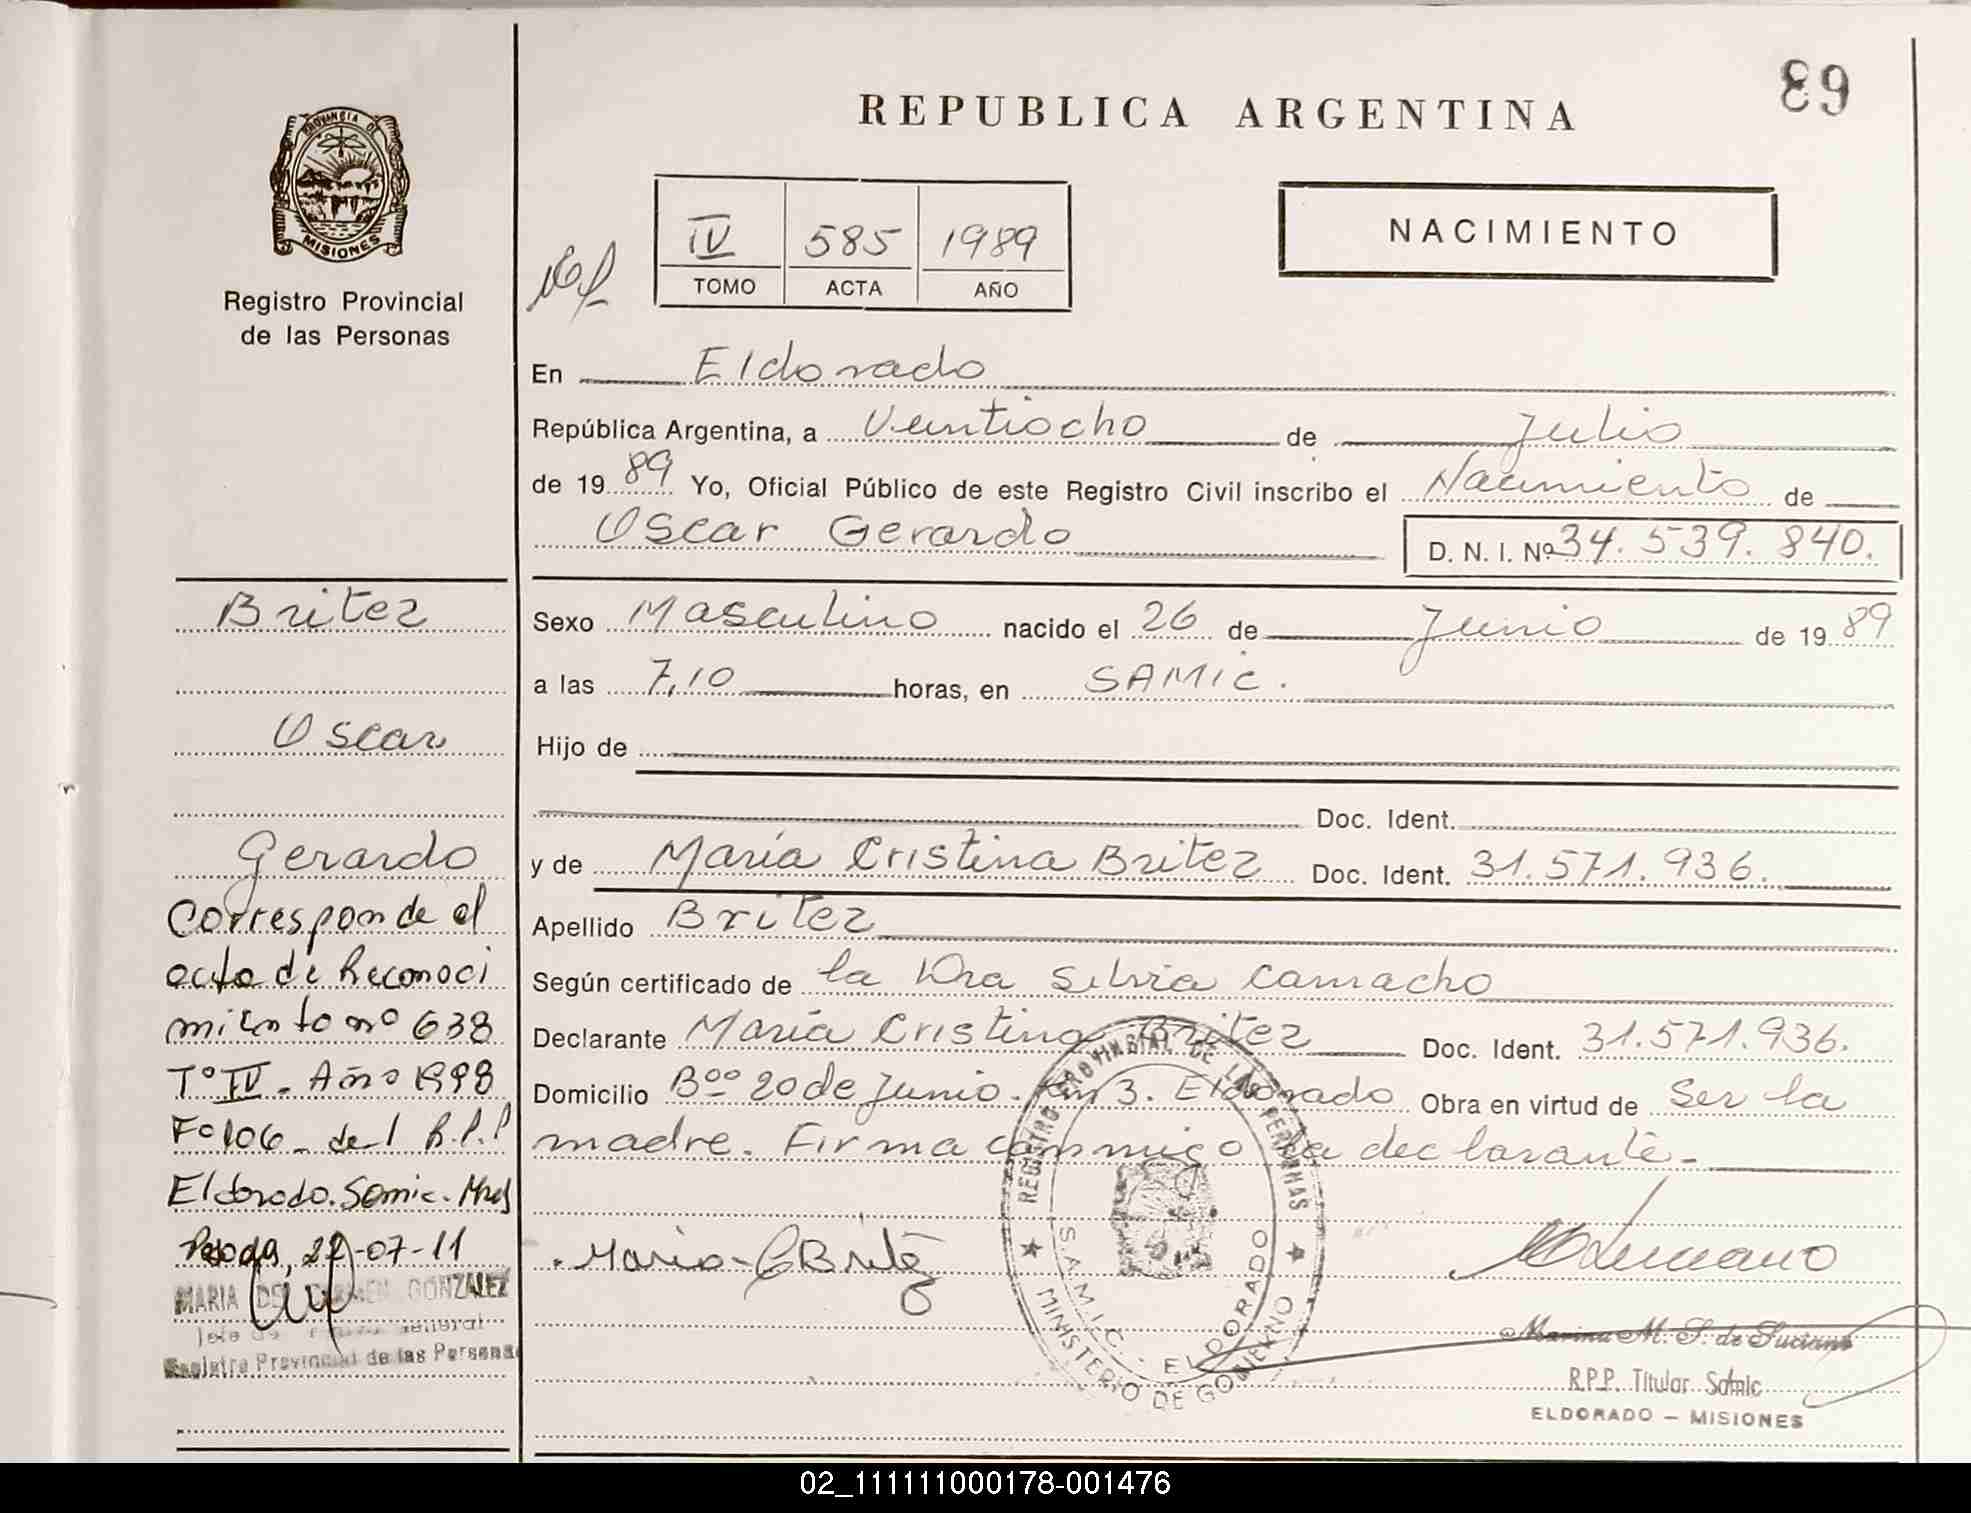 89
REPUBLICA ARGENTINA
PROVINCIA DE
MISIONES
Registro Provincial
de las Personas
IV 585 1989
TOMO ACTA AÑO
NACIMIENTO
En Eldorado
República Argentina, a Veintiocho de Julio
de 1989 Yo, Oficial Público de este Registro Civil inscribo el Nacimiento de
Oscar Gerardo D. N. I. Nº 34.539.840.
Sexo Masculino nacido el 26 de Junio de 1989
a las 7,10 horas, en SAMIC.
Hijo de
Doc. Ident.
y de María Cristina Britez Doc. Ident. 31.571.936.
Apellido Britez
Según certificado de la Dra Silvia Camacho
Declarante María Cristina Britez Doc. Ident. 31.571.936.
Domicilio Bºº 20 de Junio. Km 3. Eldorado Obra en virtud de Ser la
madre. Firma conmigo la declarante-
Britez
Oscar
Gerardo
Corresponde el
acta de Reconoci
miento nº 638
Tº IV - Año 1998
Fº 106 - del R.P.P
Eldorado. Samic. Mnes
Posadas, 22-07-11
MARIA DEL CARMEN GONZALEZ
Jefe de General
Registro Provincial de las Personas
Maria C Britez
REGISTRO PROVINCIAL DE LAS PERSONAS
S.A.M.I.C. - ELDORADO
MINISTERIO DE GOBIERNO
Marina M. S. de Luciano
R.P.P. Titular Samic
ELDORADO - MISIONES
02_111111000178-001476